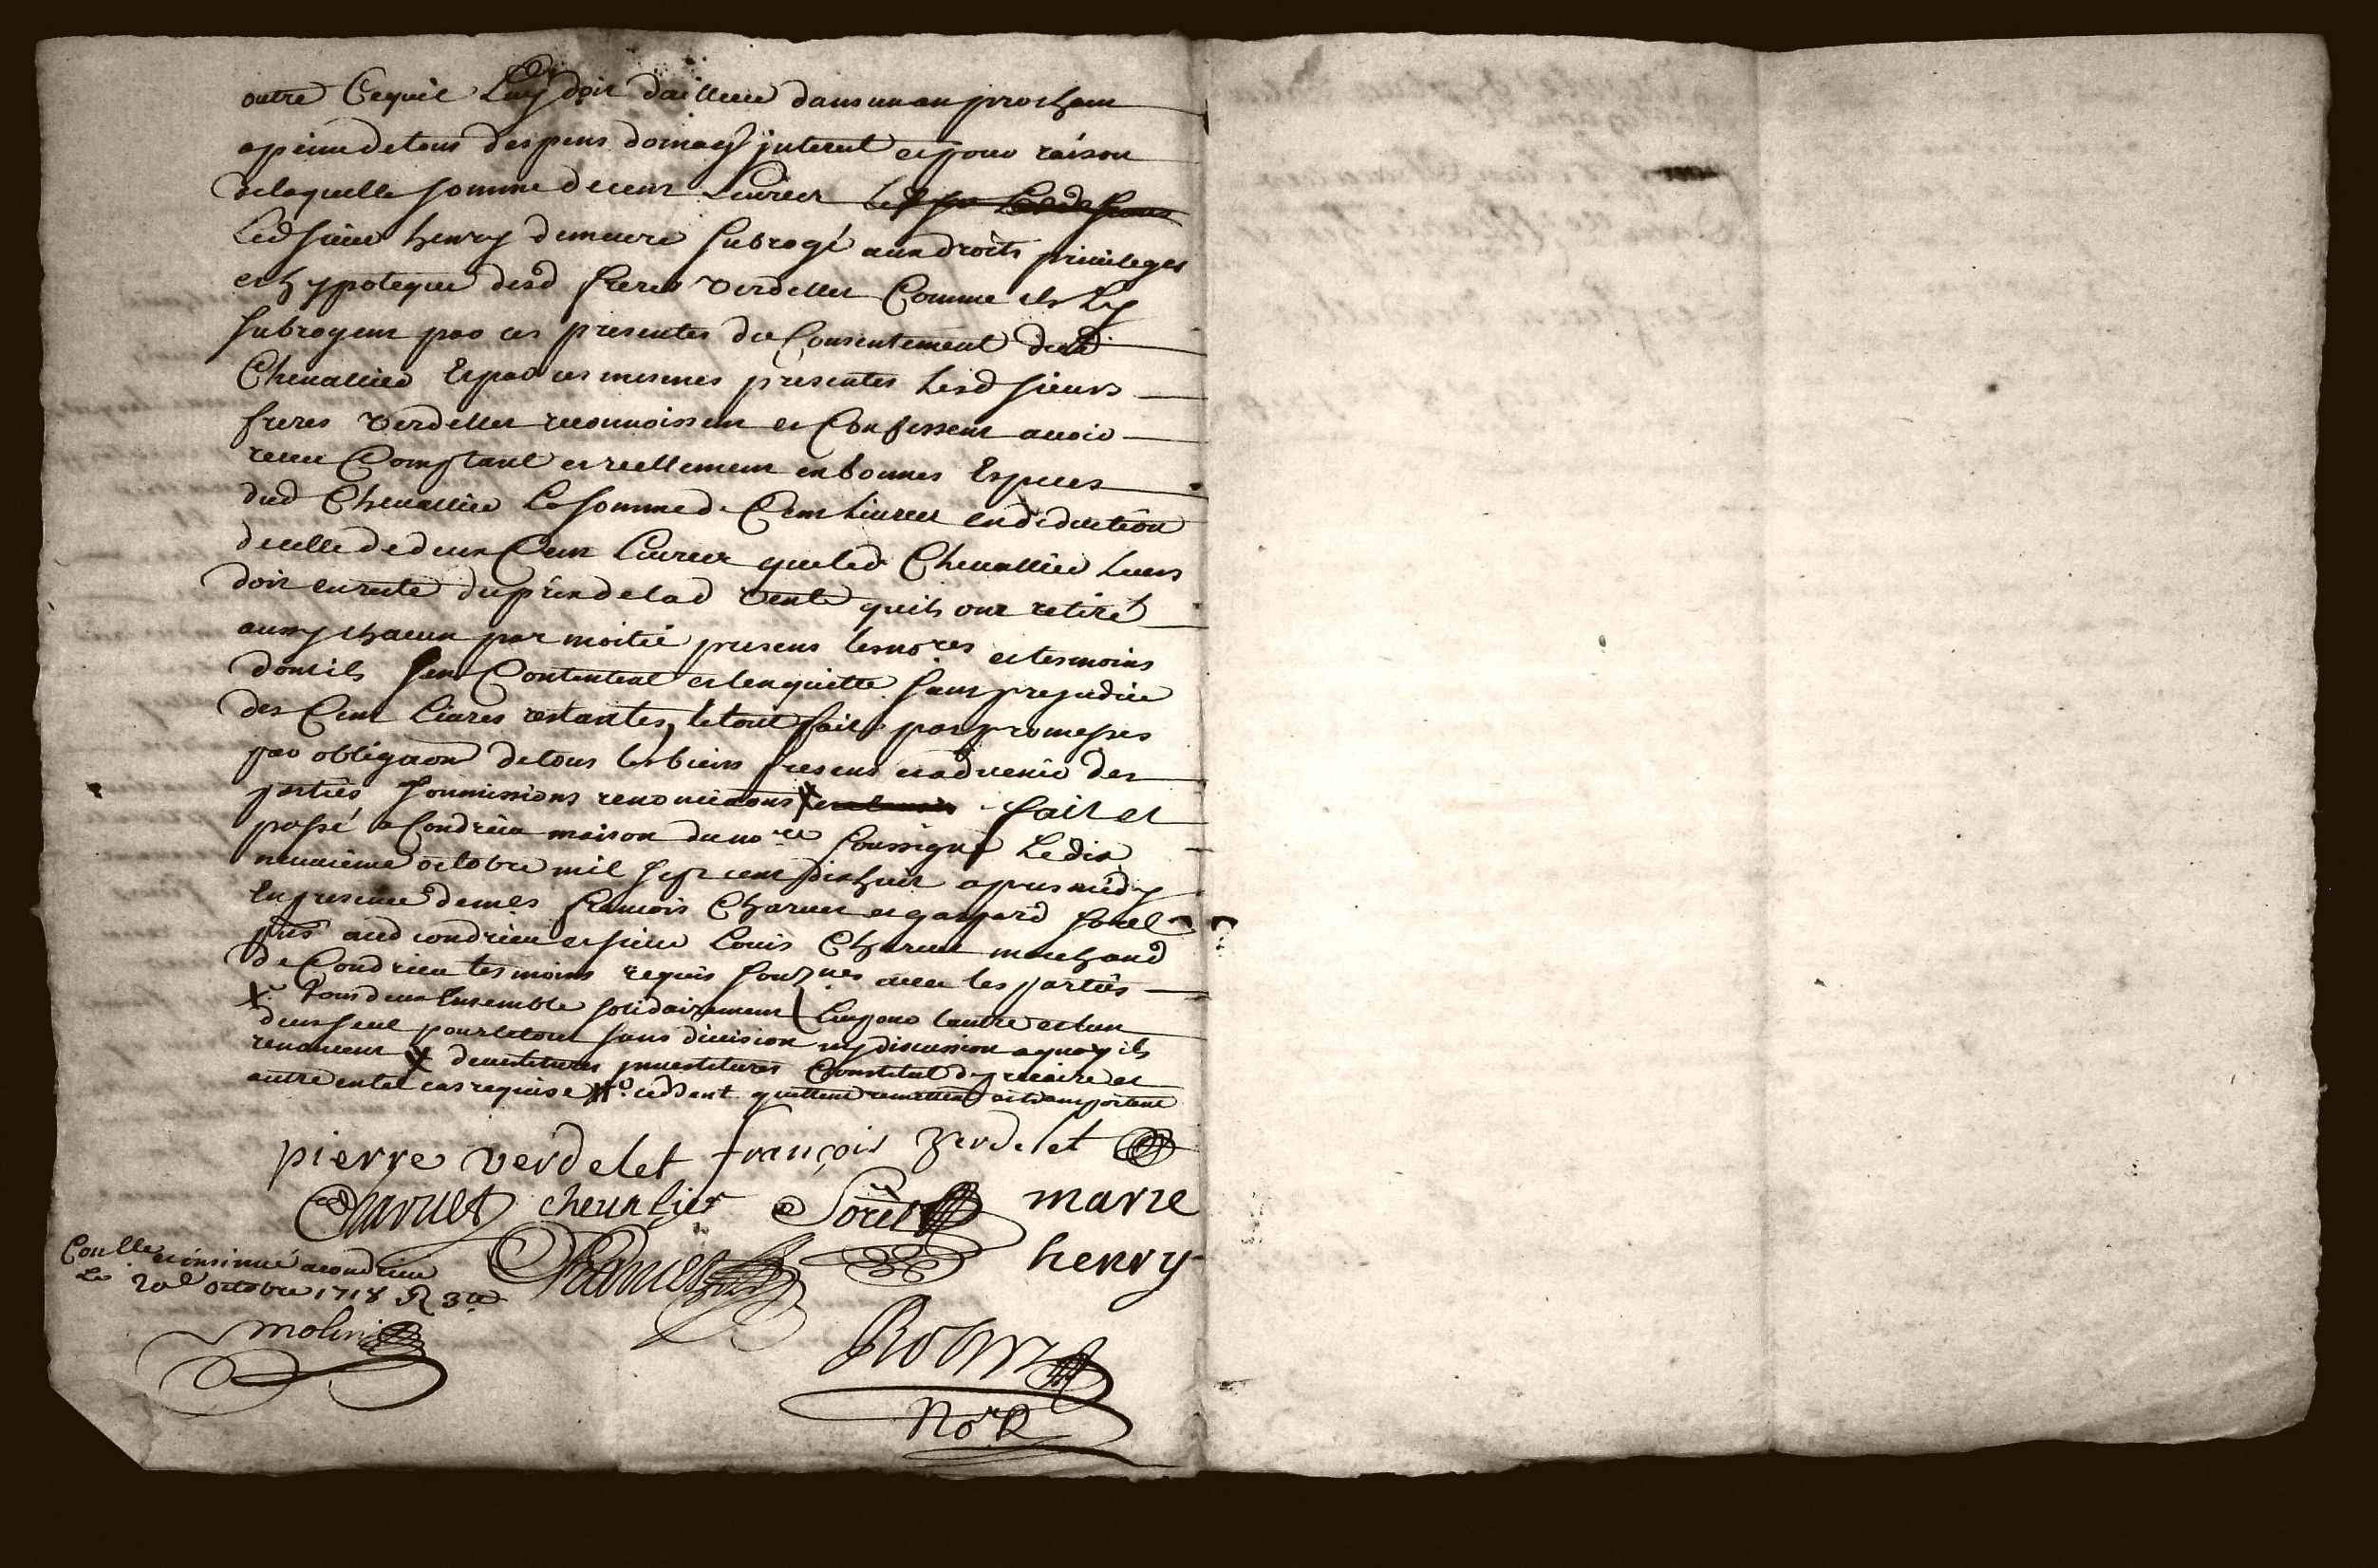 outre Cequil Luy doit dailleur dans un an prochain
a peine de tous despens domages jnterest et pour raison
de laquelle somme de cent Livres
Led sieur henry demeure subrogé aux droits privileges
et hypoteques desd freres verdellet Comme ils Ly
subrogent par ces presentes du Consentement dud
Chevallier Et par ces mesmes presentes Lesd sieurs
freres verdellet reconnoissent et Confessent avoir
receu Comptant et reellement en bonnes Especes
dud Chevallier La somme de Cent Livres en deduction
de celle de deux Cent Livres que led Chevallier Leurs
doit en reste du prix de lad vente quils ont retiré
aussy chacun par moitié presens les nores et tesmoins
dont ils sen Contentent et lenquitte sans prejudice
des Cent Livres restantes, le tout fait par promesses
par obligaon de tous les biens presens et advenir des
parties soumissions renonciaons X fait et
passé a Condrieu maison du nore soussigné Le dix
neuvieme octobre mil sept cent dix huit apres midy
En presence de mes francois Charvet et gaspard sorel
prs aud condrieu et sieur Louis Charvet marchand
de Condrieu tesmoins requis souznes avec les parties
X tous deux Ensemble solidairement Lun pour lautre et lun
deux seul pour le tout sans division ny discussion a quoy ils
renoncent X devestitures jnvestitures Constitut de precaire et
autre en tel cas requise ceddent quittent remettent et transportent
pierre verdelet françois verdelet
Charvet chevalier Sorel marie
Charvet henry
Conlle et insinué a condrieu
Le 20e octobre 1718 R 3tt
molin
Robin
Nore